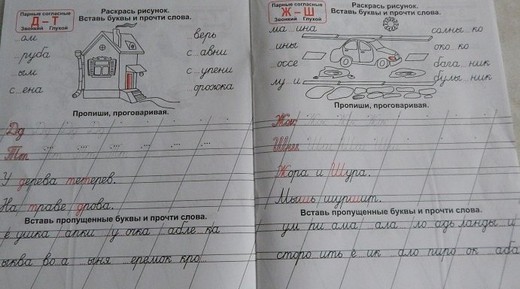 Парные согласные
Д – Т
Звонкий Глухой
Раскрась рисунок.
Вставь буквы и прочти слова.
...ом
...руба
...ым
с...ена
...верь
с...авни
с...упени
...орожка
Пропиши, проговаривая.
Дд
Тт
У дерева тетерев.
На траве дрова.
Вставь пропущенные буквы и прочти слова.
ё ушка апки у очка абле ка
ыква во а ыня еремок кро
Парные согласные
Ж – Ш
Звонкий Глухой
Раскрась рисунок.
Вставь буквы и прочти слова.
ма...ина
...ины
...оссе
лу...и
солны...ко
око...ко
бага...ник
булы...ник
Пропиши, проговаривая.
Жора и Шура.
Мышь шуршит.
Вставь пропущенные буквы и прочти слова.
ум пи ама ала ло адь ланды и
сторо ить ё ик ало пиро ок аба